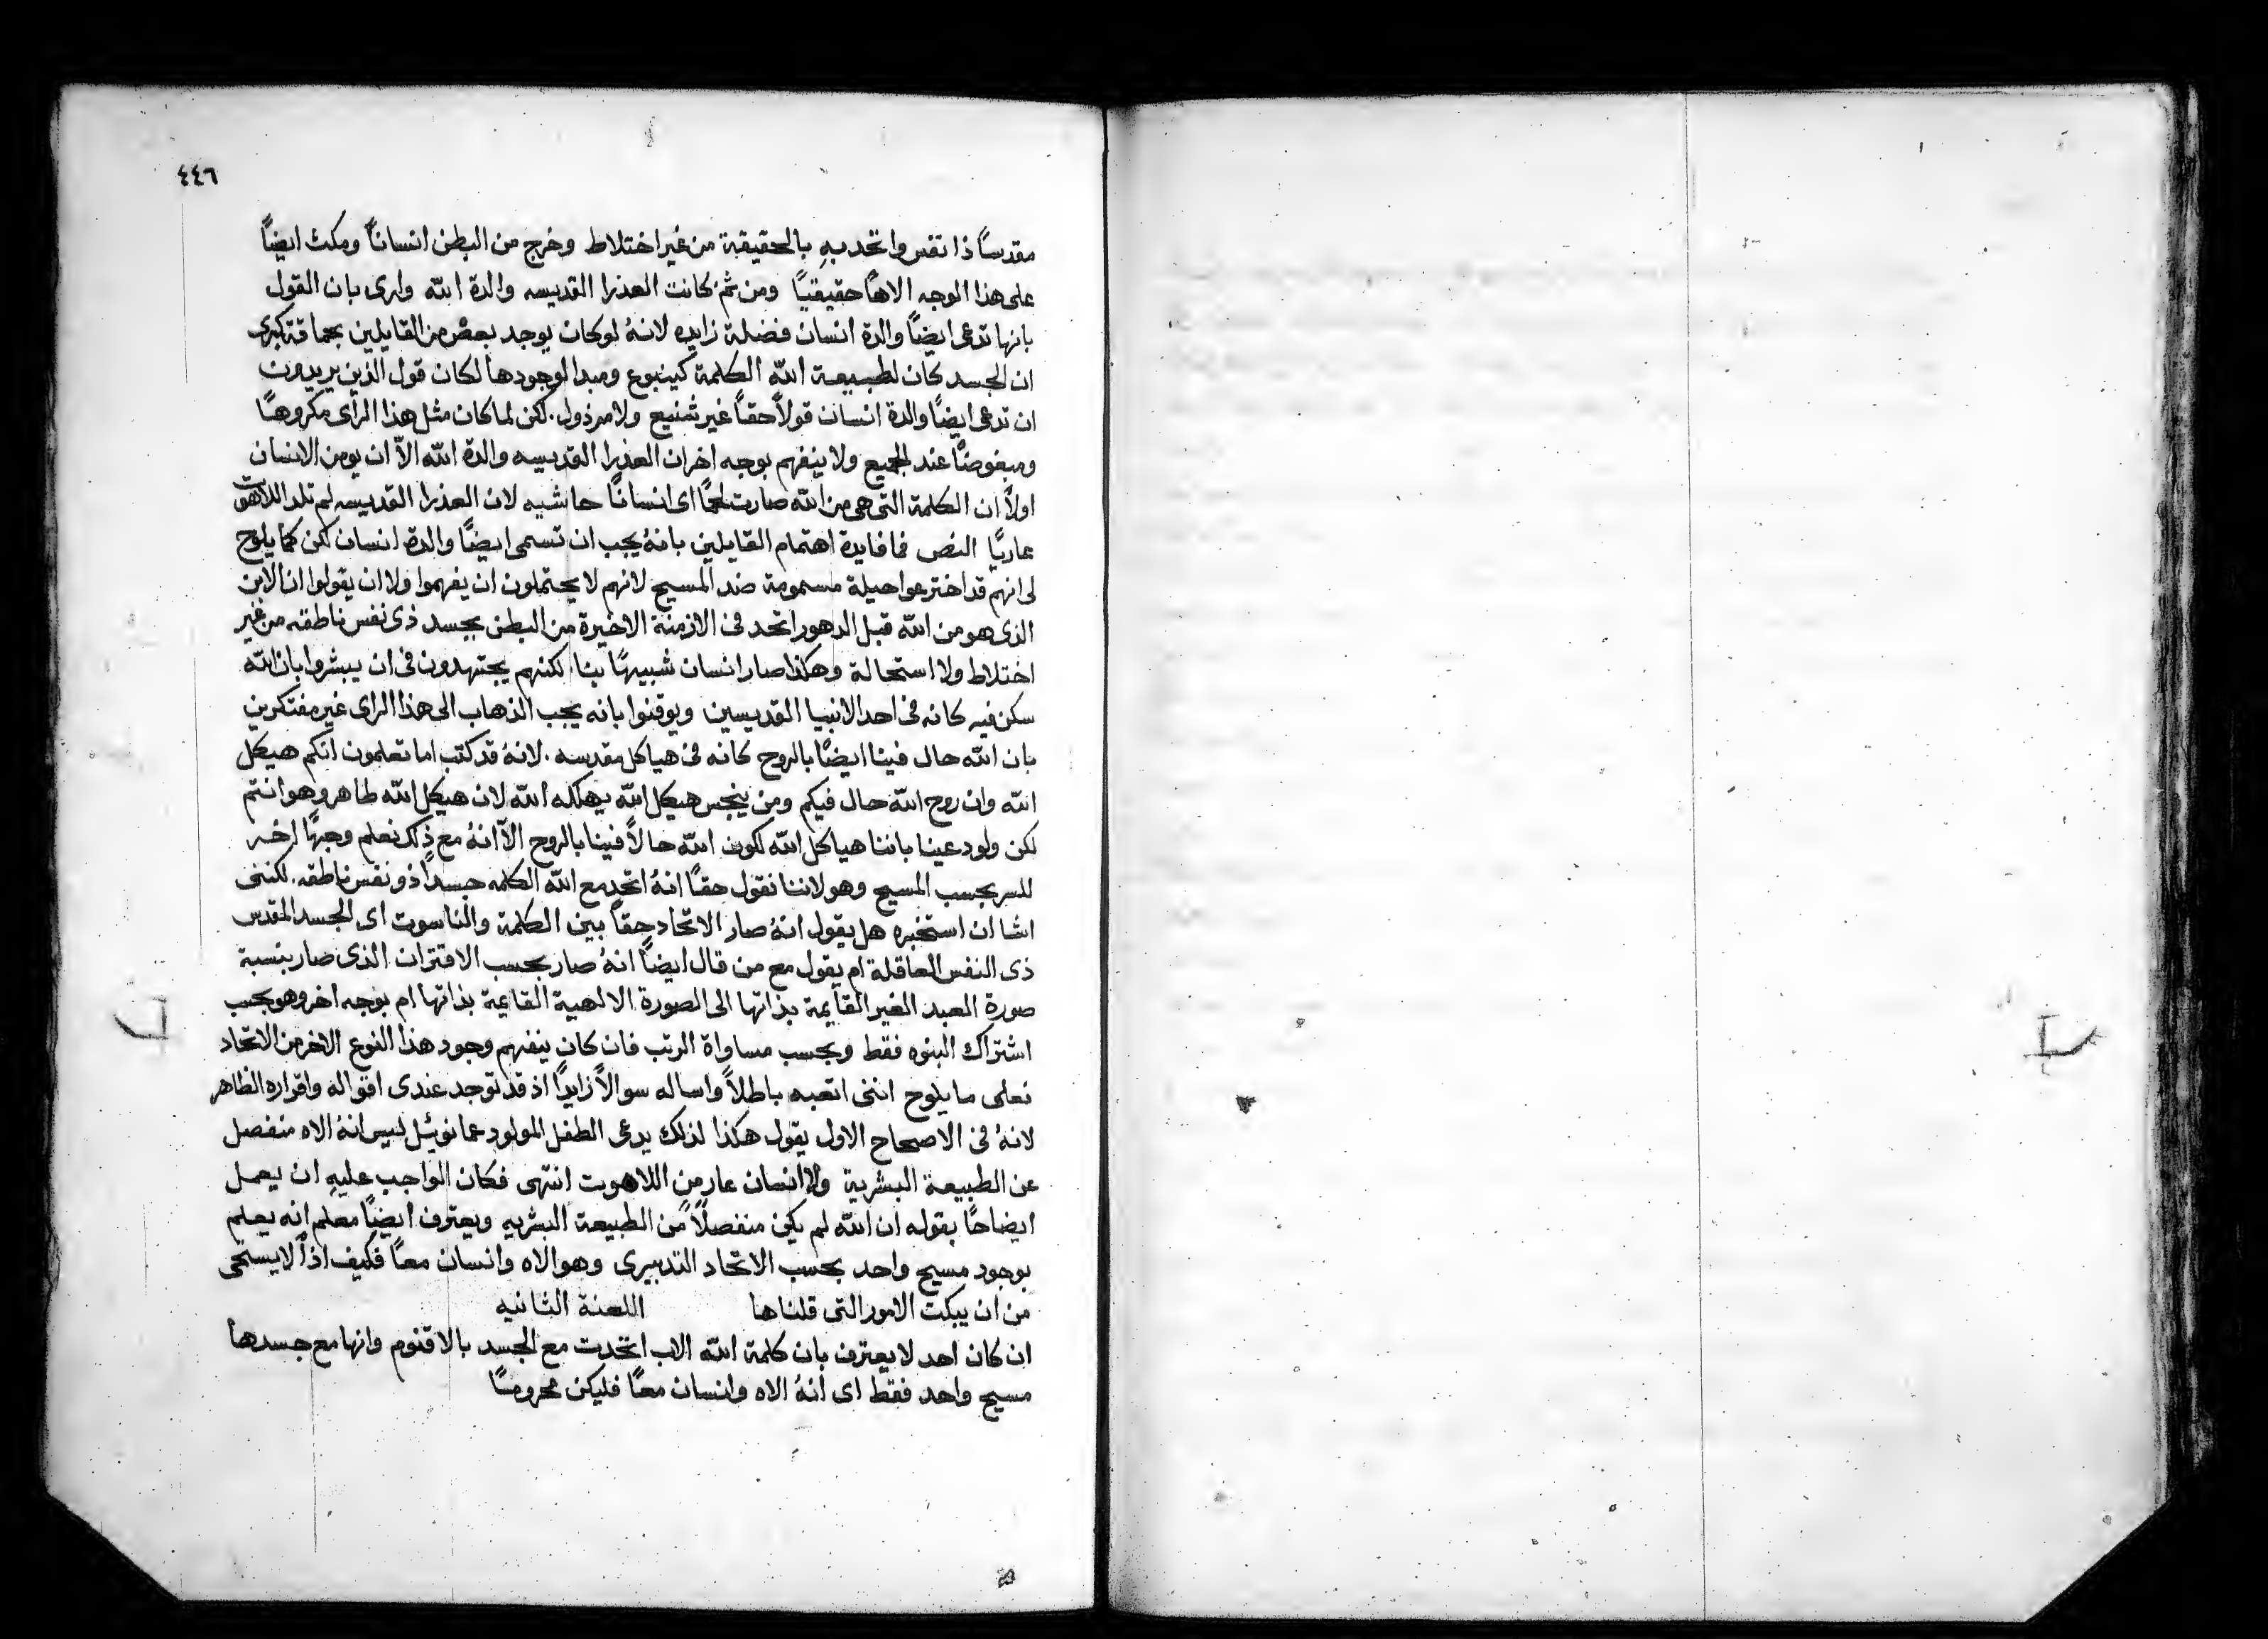 ٤٤٦
مقدساً ذا نفس واتحد بهِ بالحقيقة من غير اختلاط وخرج من البطن انساناً ومكث ايضاً
على هذا الوجه الاهاً حقيقياً ومن ثمَّ كانت العذرا القديسه والدة الله وارى بان القول
بانها تدعى ايضاً والدة انسان فضلة زايده لانهُ لو كان يوجد بعض من القايلين بحماقة كبرى
ان الجسد كان لطبيعة الله الكلمة كينبوع ومبدا لوجودها لكان قول الذين يريدون
ان تدعى ايضاً والدة انسان قولاً حقاً غير شنيع ولا مرذول. لكن لما كان مثل هذا الرأى مكروهاً
ومبغوضاً عند الجميع ولا ينفهم بوجه اخر ان العذرا القديسه والدة الله الاّ ان يومن الانسان
اولاً ان الكلمة التى هى من الله صارت لحماً اى انساناً حاشيه لان العذرا القديسه لم تلد اللاهوت
عارياً النص فما فايدة اهتمام القايلين بانهُ يجب ان تسمى ايضاً والدة انسان لكن كما يلوح
لى انهم قد اخترعوا حيلة مسمومة ضد المسيح لانهم لا يحتملون ان يفهموا ولا ان يقولوا ان الابن
الذى هو من الله قبل الدهور اتحد فى الازمنة الاخيرة من البطن بجسد ذى نفس ناطقه من غير
اختلاط ولا استحالة وهكذا صار انسان شبيهًا بنا لكنهم يجتهدون فى ان يبشروا بان الله
سكن فيه كانه فى احد الانبيا القديسين ويوقنوا بانه يجب الذهاب الى هذا الراى غير مفتكرين
بان الله حال فينا ايضاً بالروح كانه فى هياكل مقدسه. لانهُ قد كتب اما تعلمون انكم هيكل
الله وان روح الله حال فيكم ومن ينجس هيكل الله يهلكه الله لان هيكل الله طاهر وهو انتم
لكن ولو دعينا باننا هياكل الله لكون الله حالاً فينا بالروح الاّ انهُ مع ذلك نعلم وجهًا اخر
للسر بحسب المسيح وهو لاننا نقول حقاً انهُ اتحد مع الله الكلمه جسداً ذو نفس ناطقه. لكننى
اشا ان استخبره هل يقول انهُ صار الاتحاد حقاً بين الكلمة والناسوت اى الجسد المقدس
ذى النفس العاقلة ام يقول مع من قال ايضاً انهُ صار بحسب الاقتران الذى صار بنسبة
صورة العبد الغير القايمة بذاتها الى الصورة الالهية القايمة بذاتها ام بوجه اخر وهو بحسب
اشتراك البنوه فقط وبحسب مساواة الرتب فان كان ينفهم وجود هذا النوع الاخر من الاتحاد
فعلى ما يلوح اننى اتعبه باطلاً واساله سوالاً زايداً اذ قد توجد عندى اقواله واقراره الظاهر
لانهُ فى الاصحاح الاول يقول هكذا لذلك يدعى الطفل المولود عمانوئيل ليس انهُ الاه منفصل
عن الطبيعة البشرية ولا انسان عار من اللاهوت انتهى فكان الواجب عليهِ ان يعمل
ايضاحاً بقوله ان الله لم يكن منفصلاً من الطبيعة البشريه ويعترف ايضاً معلم انه يعلم
بوجود مسيح واحد بحسب الاتحاد التدبيرى وهو الاه وانسان معاً فكيف اذاً لا يستحى
من ان يبكت الامور التى قلناها اللعنة الثانيه
ان كان احد لا يعترف بان كلمة الله الاب اتحدت مع الجسد بالاقنوم وانها مع جسدها
مسيح واحد فقط اى انهُ الاه وانسان معاً فليكن محروماً